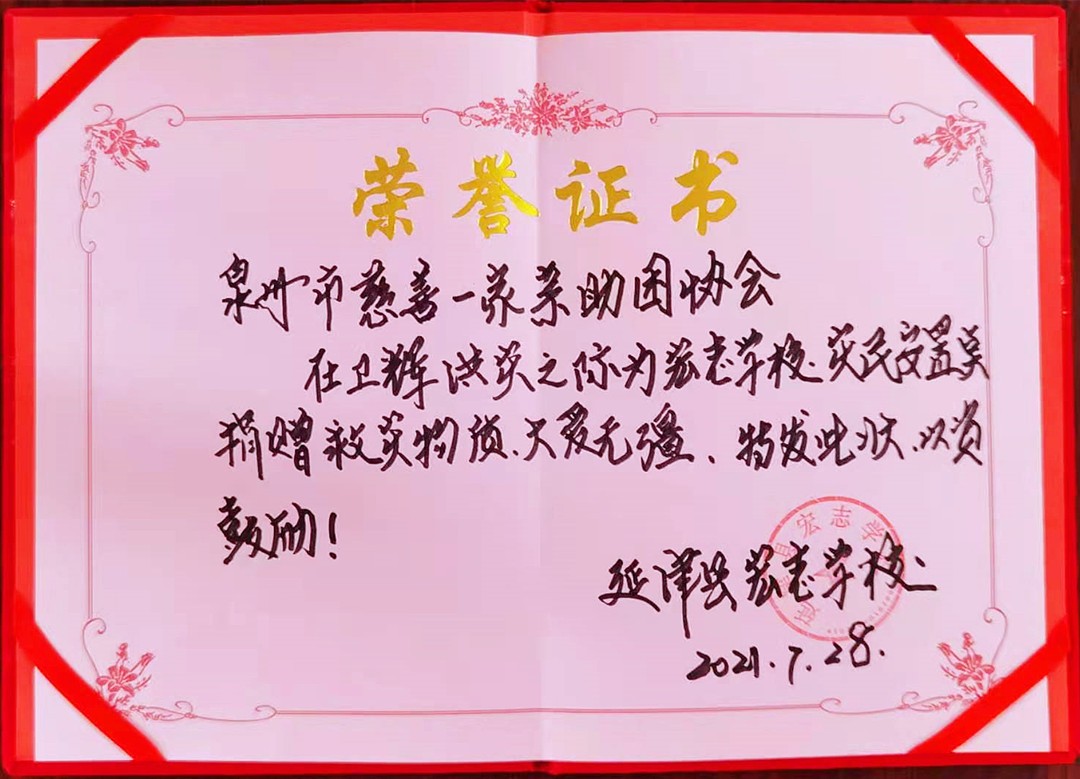 荣誉证书
泉州市慈善一家亲助困协会
在卫辉洪灾之际为宏志学校灾民安置点
捐赠救灾物质、大爱无疆、特发此状、以资
鼓励!
宏志学
延津县宏志学校
2021.7.28.